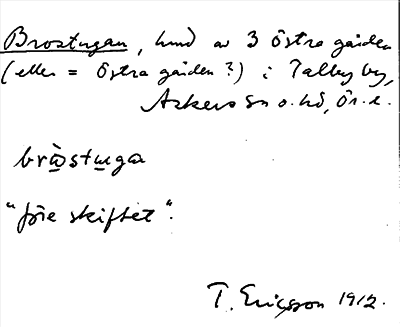 Brostugan, hmd av 3 Östra gården
(eller = Östra gården?) i Talby by,
Askers sn o. hd, Ör. l.
bròstuga
"före skiftet".
T. Ericsson 1912.